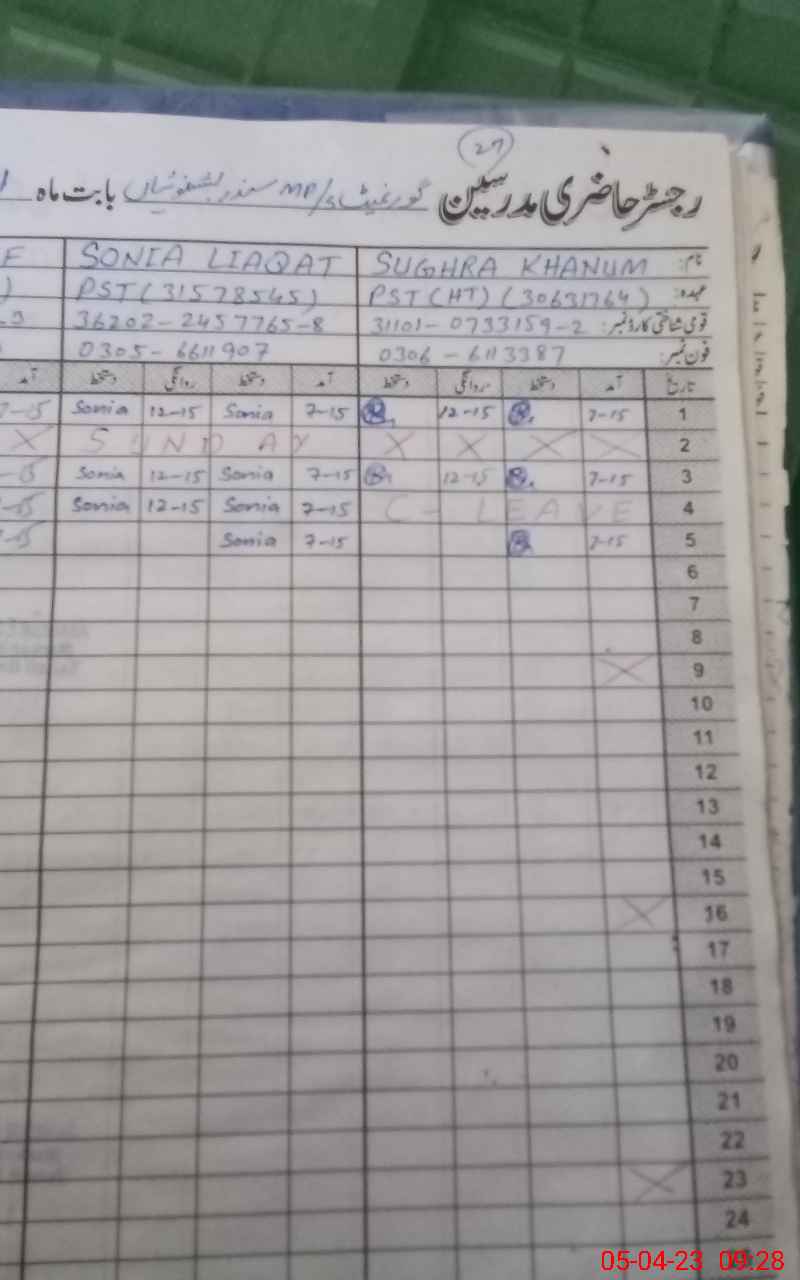 27
رجسٹر حاضری مدرسین گورنمنٹ MP/s بابت ماہ
نام: SUGHRA KHANUM SONIA LIAQAT F
عہدہ: PST (HT) (30631764) PST (31578545) )
قومی شناختی کارڈ نمبر: 31101-0733159-2 36202-2457765-8
فون نمبر: 0306-6113387 0305-6611907
تاریخ آمد دستخط روانگی دستخط آمد دستخط روانگی دستخط آمد
1 7-15 12-15 7-15 Sonia 12-15 Sonia 7-15
2 X X X X SUNDAY X
3 7-15 12-15 7-15 Sonia 12-15 Sonia
4 C-LEAVE 7-15 Sonia 12-15 Sonia
5 7-15 7-15 Sonia
6
7
8
9 X
10
11
12
13
14
15
16 X
17
18
19
20
21
22
23 X
24
05-04-23 09:28